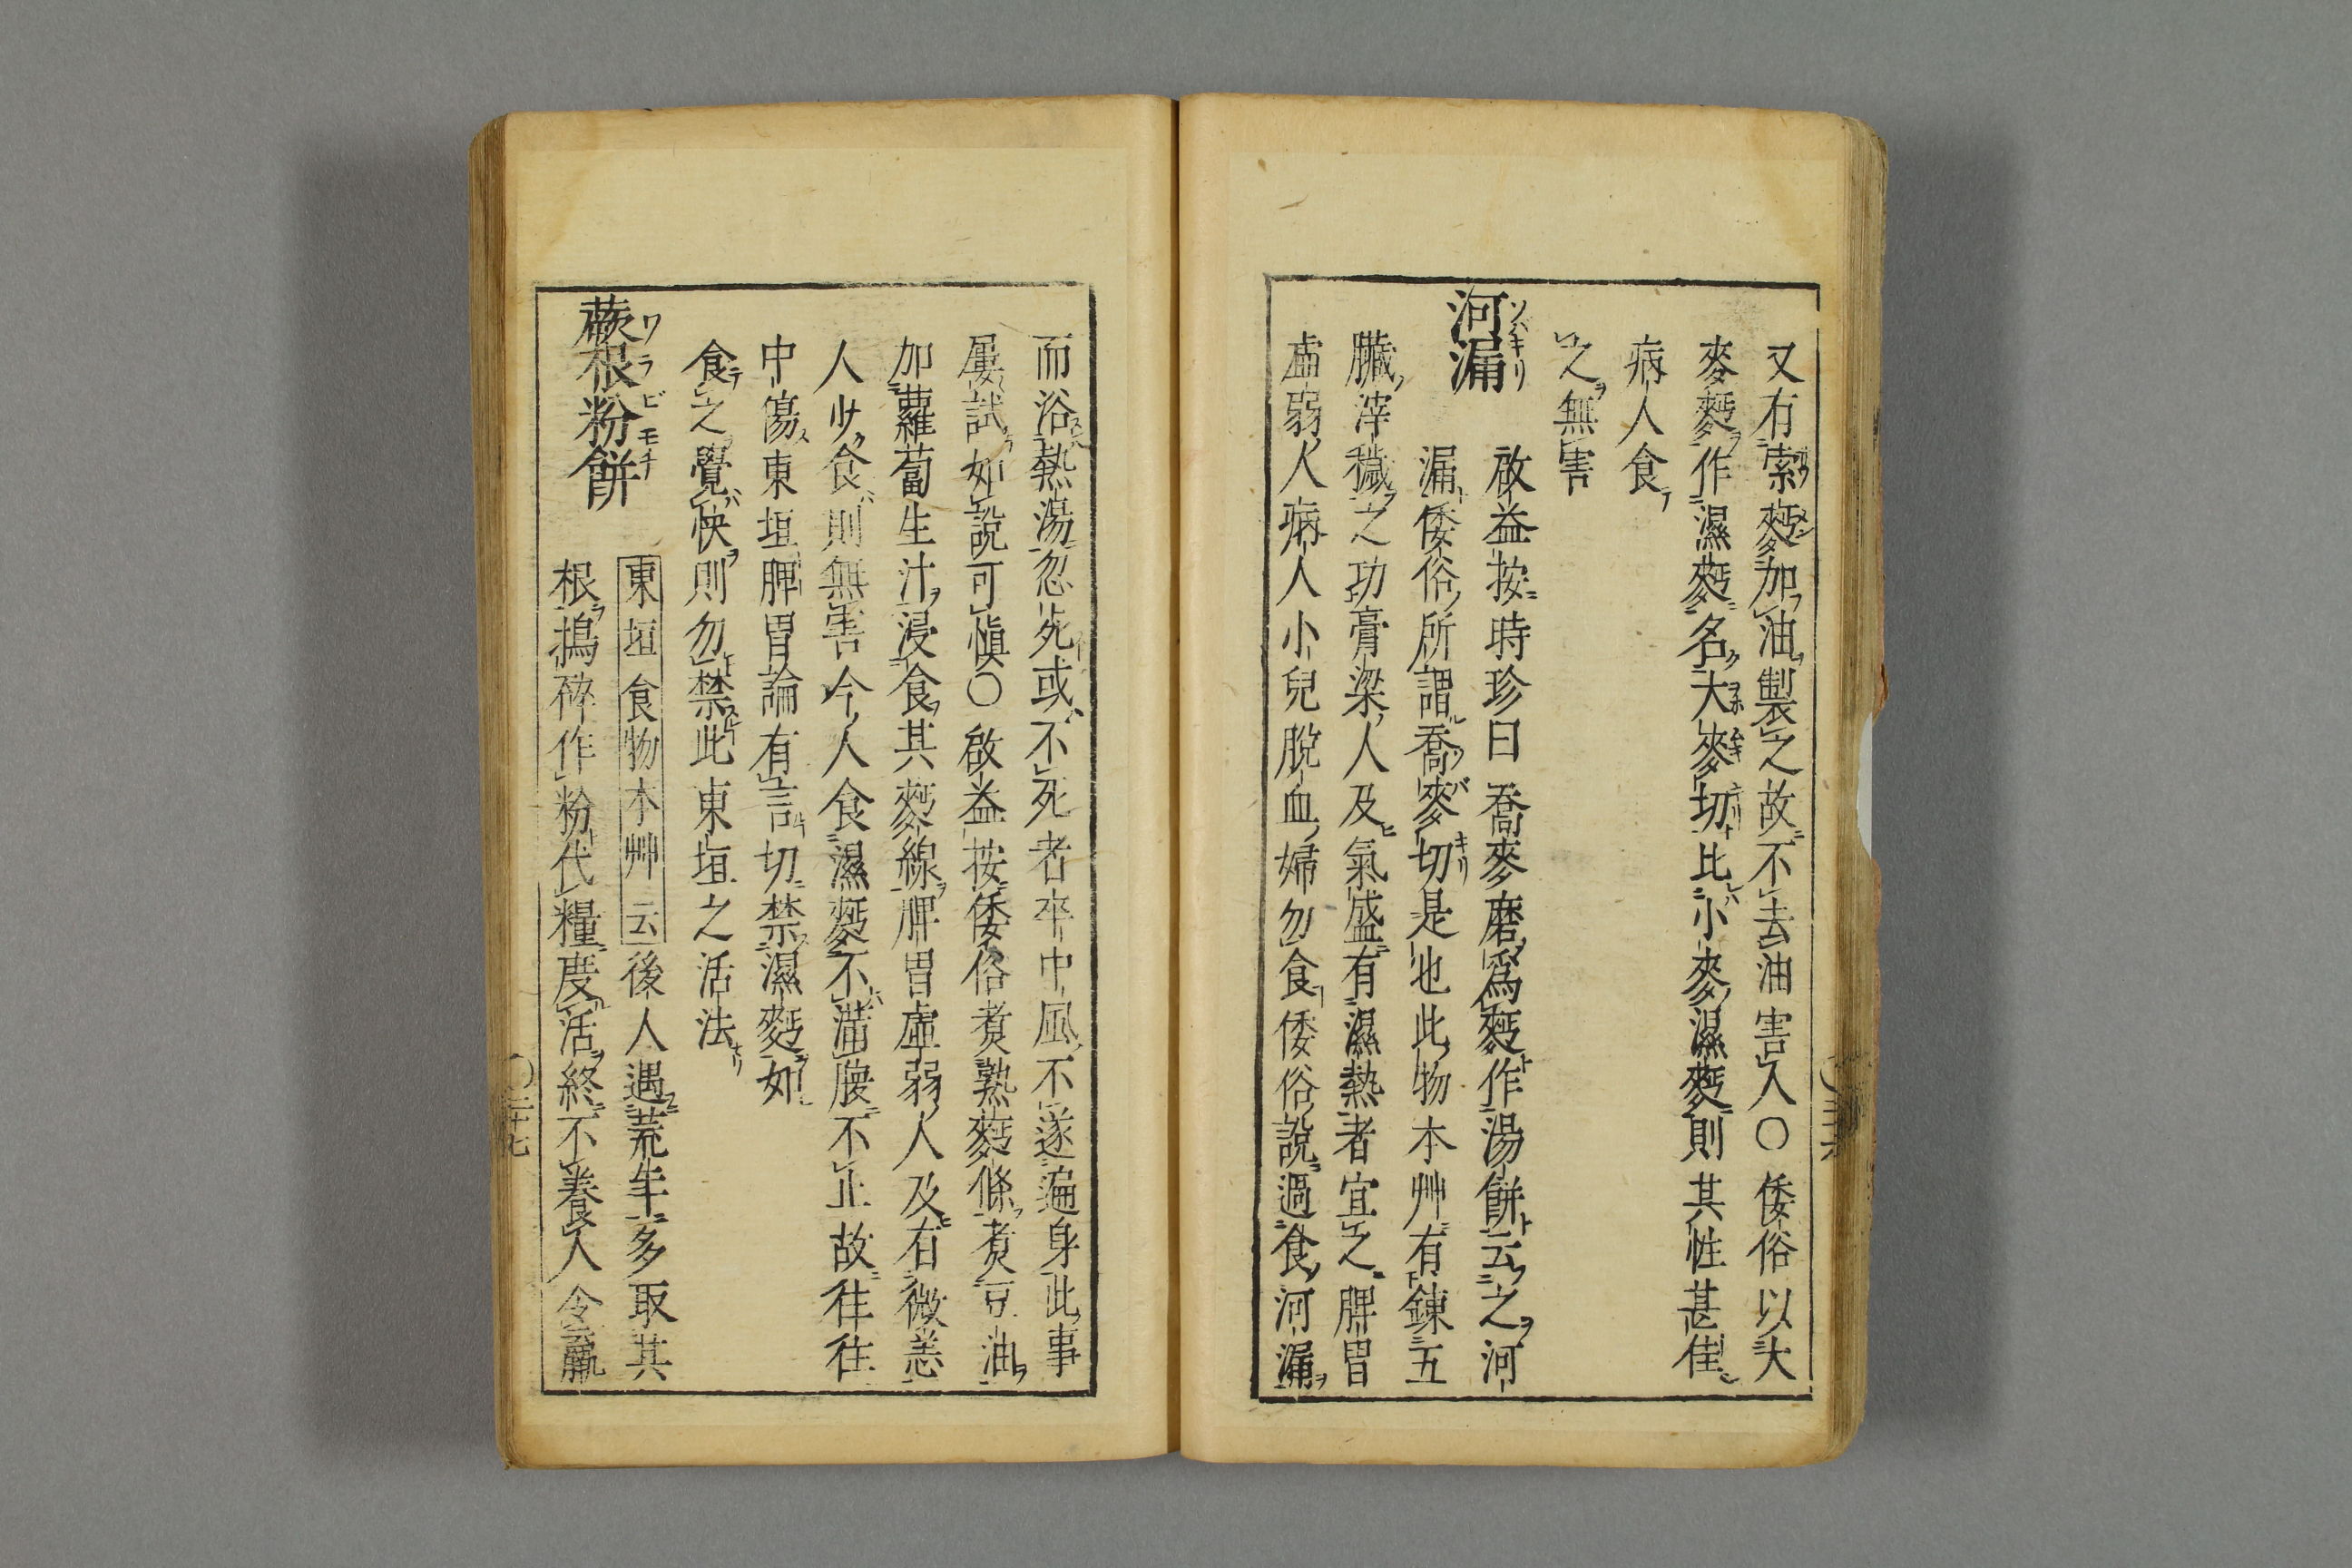 又有索麪加油製之故不去油害人〇倭俗以大
麥麪作濕麪名大麥切比小麥濕麪則其性甚佳
病人食
之無害
河漏
ソバキリ
啟益按時珍曰喬麥磨爲麪作湯餅云之河
漏倭俗所謂喬麥切是也此物本艸有鍊五
臟滓穢之功膏粱人及氣盛有濕熱者宜之脾胃
虛弱人病人小兒脫血婦勿食倭俗說過食河漏
而浴熱湯忽死或不死者卒中風不遂遍身此事
屢試如說可愼〇啟益按倭俗煑熟麪條煑豆油
加蘿蔔生汁浸食其麪線脾胃虛弱人及有微恙
人少食則無害今人食濕麪不滿腹不止故往往
中傷東垣脾胃論有言切禁濕麪如
食之覺快則勿禁此東垣之活法
蕨根粉餅
ワラビモチ
東垣食物本艸云後人遇荒年多取其
根搗碎作粉代糧度活終不養人令羸
〇二十七